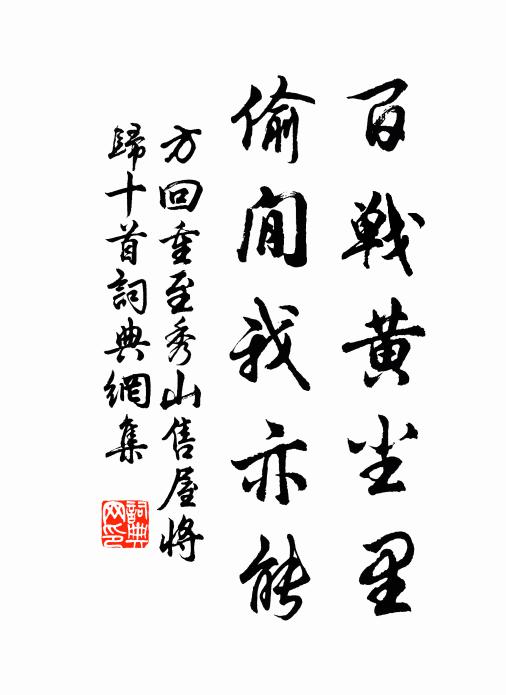 百戰黃尘里
偷閒我亦能
方回重至秀山售屋將
歸十首詞典網集
詞典
网印